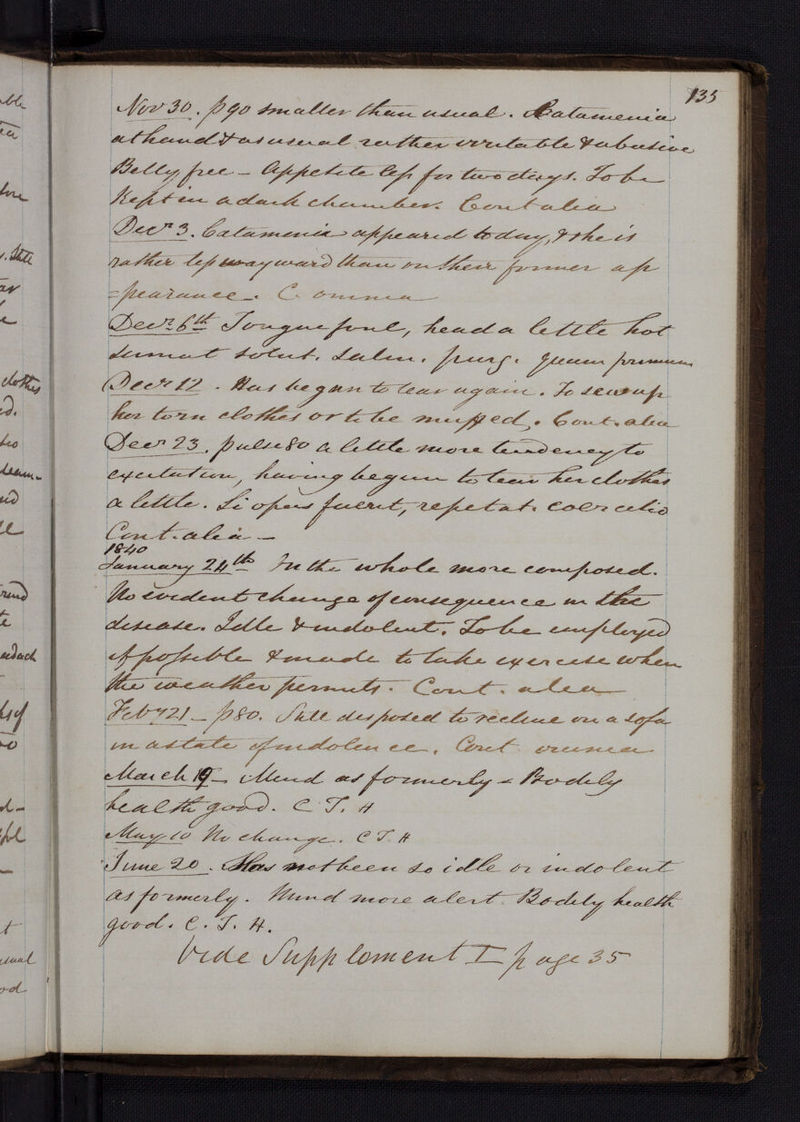 135
Nov 30. p 90 smaller than usual. Catamenia
at hand & as usual rather irritable & abusive
Belly free - Appetite less for two days. To be
Kept in a dark chamber. Cont alia
Decr 3. Catamenia appeared today, & she is
rather less wayward than on their former ap
=pearance. C omnia
Decr 6th Tongue foul, head a little hot
Sumat solut. salin. purg. quam primum
Decr 12. Has began to tear again. To sew up
her torn clothes or to be muffed. Cont. alia
Decr 23. pulse 80 a little more tendency to
excitation, having begun to tear her clothes
a little. Si opus fuerit, repetat. coercitio
Cont. alia -
1840
January 24th On the whole more composed.
No evident change of consequence in the
disease. Idle & indolent. To be employed
if possible & made to take exercise when
the weather permits. Cont. alia
Feby 21 - p 80. Still disposed to recline on a sofa
in a state of indolence. Cont omnia
March 19 - Mind as formerly - Bodily
health good. C. T. H
May 10 No change. C T. H
June 20. Has not been so idle or indolent
as formerly. Mind more alert. Bodily health
good. C. T. H.
Vide Supplement I page 35